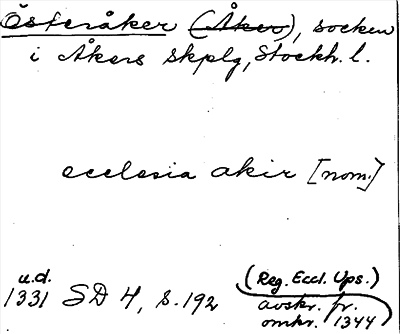 Österåker (Åker), socken
i Åkers skplg, Stockh. l.
ecclesia akir [nom.]
u.d.
1331 SD 4, s. 192
(Reg. Eccl. Ups.)
avskr. fr.
omkr. 1344)